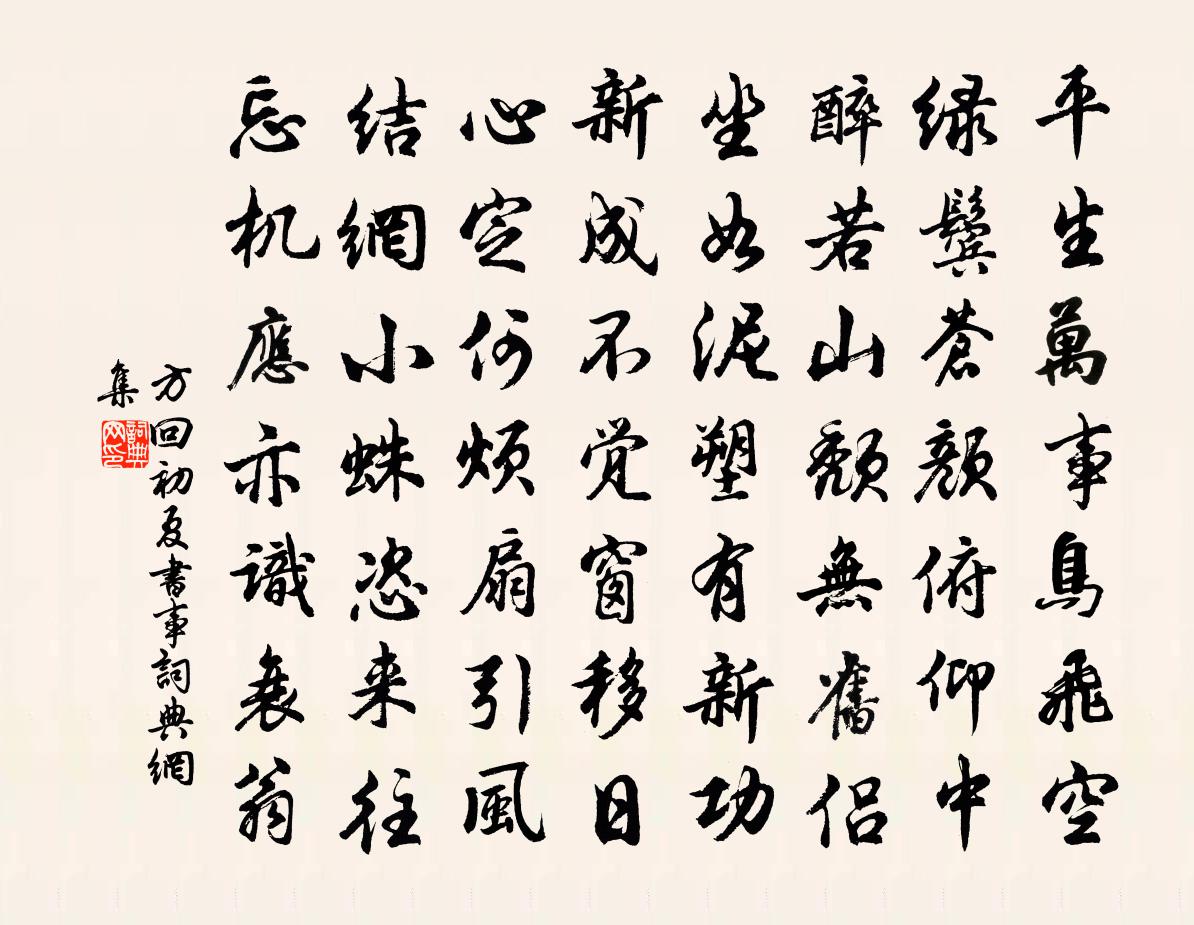 平生萬事鳥飛空
緑鬢蒼顔俯仰中
醉若山頽無舊侣
坐如泥塑有新功
新成不觉窗移日
心定何煩扇引風
结網小蛛恣来往
忘机應亦識衰翁
方回初夏書事詞典網
集
詞典
网印